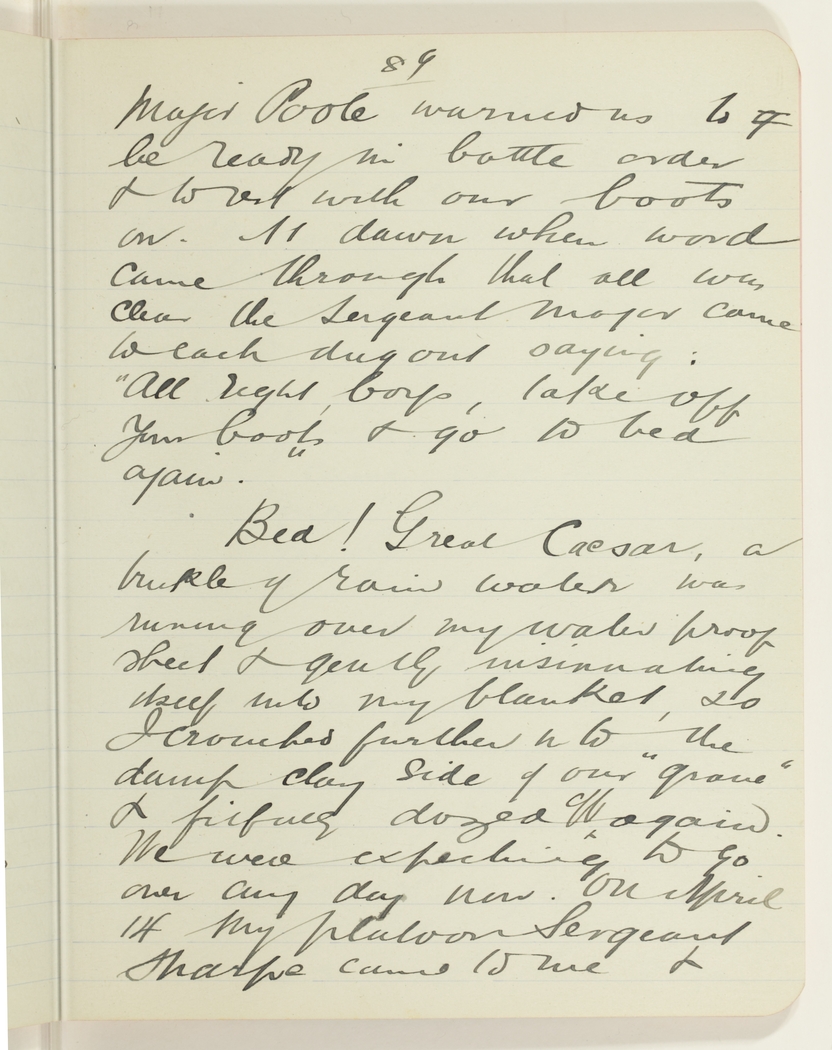 89
Major Poole warned us to
be ready in battle order
& to rest with our boots
on. At dawn when word
came through that all was
clear the Sergeant Major came
to each dug out saying :
"All right, boys, take off
your boots & go to bed
again."
Bed! Great Caesar, a
trickle of rain water was
running over my water proof
sheet & gently insinuating
itself into my blanket, so
I crouched further into the
damp clay side of our "grave"
& fitfully dozed off again.
We were expecting to go
over any day now. On April
14 my platoon Sergeant
Sharpe came to me &